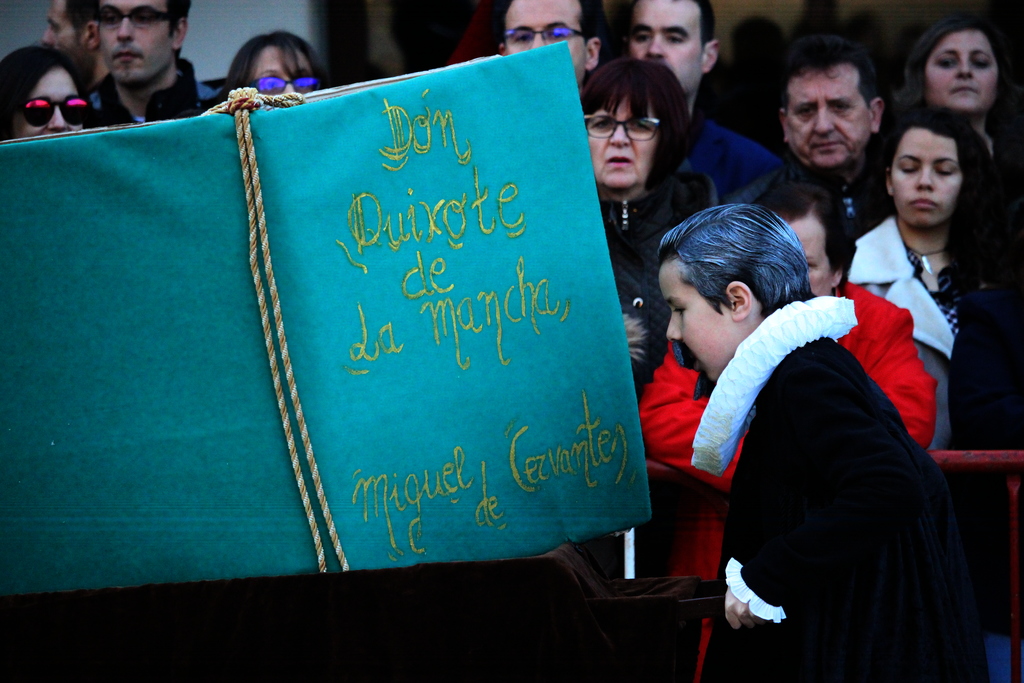 Dón
Quixote
de
La mancha,
miguel de Cervantes